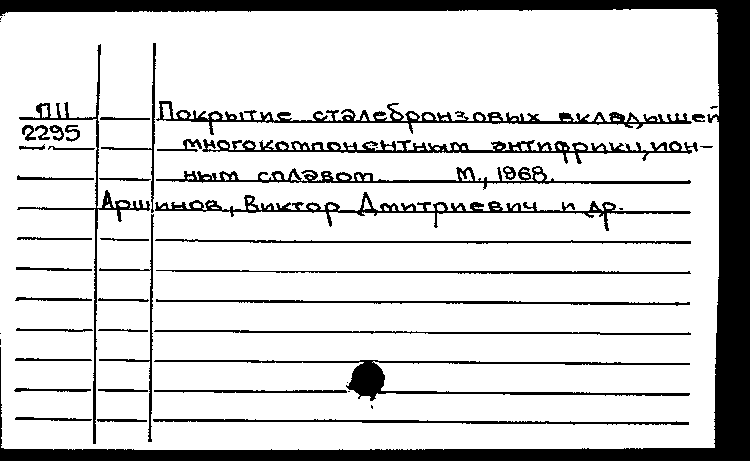 П11 Покрытие сталебронзовых вкладышей
2295 многокомпонентным антифрикцион-
ным сплавом. М., 1968.
Аршинов, Виктор Дмитриевич и др.